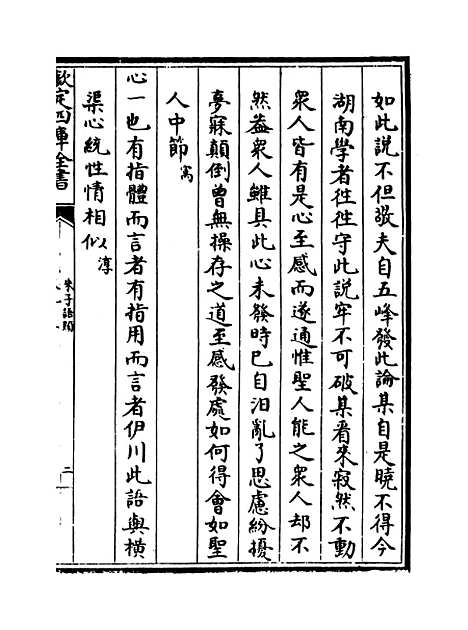 如此說不但敬夫自五峰發此論某自是曉不得今
湖南學者往往守此說牢不可破某看來寂然不動
衆人皆有是心至感而遂通惟聖人能之衆人却不
然葢衆人雖具此心未發時已自汨亂了思慮紛擾
夢寐顛倒曾無操存之道至感發處如何得會如聖
人中節㝢
心一也有指體而言者有指用而言者伊川此語與橫
渠心統性情相似淳
欽定四庫全書
朱子語類
二